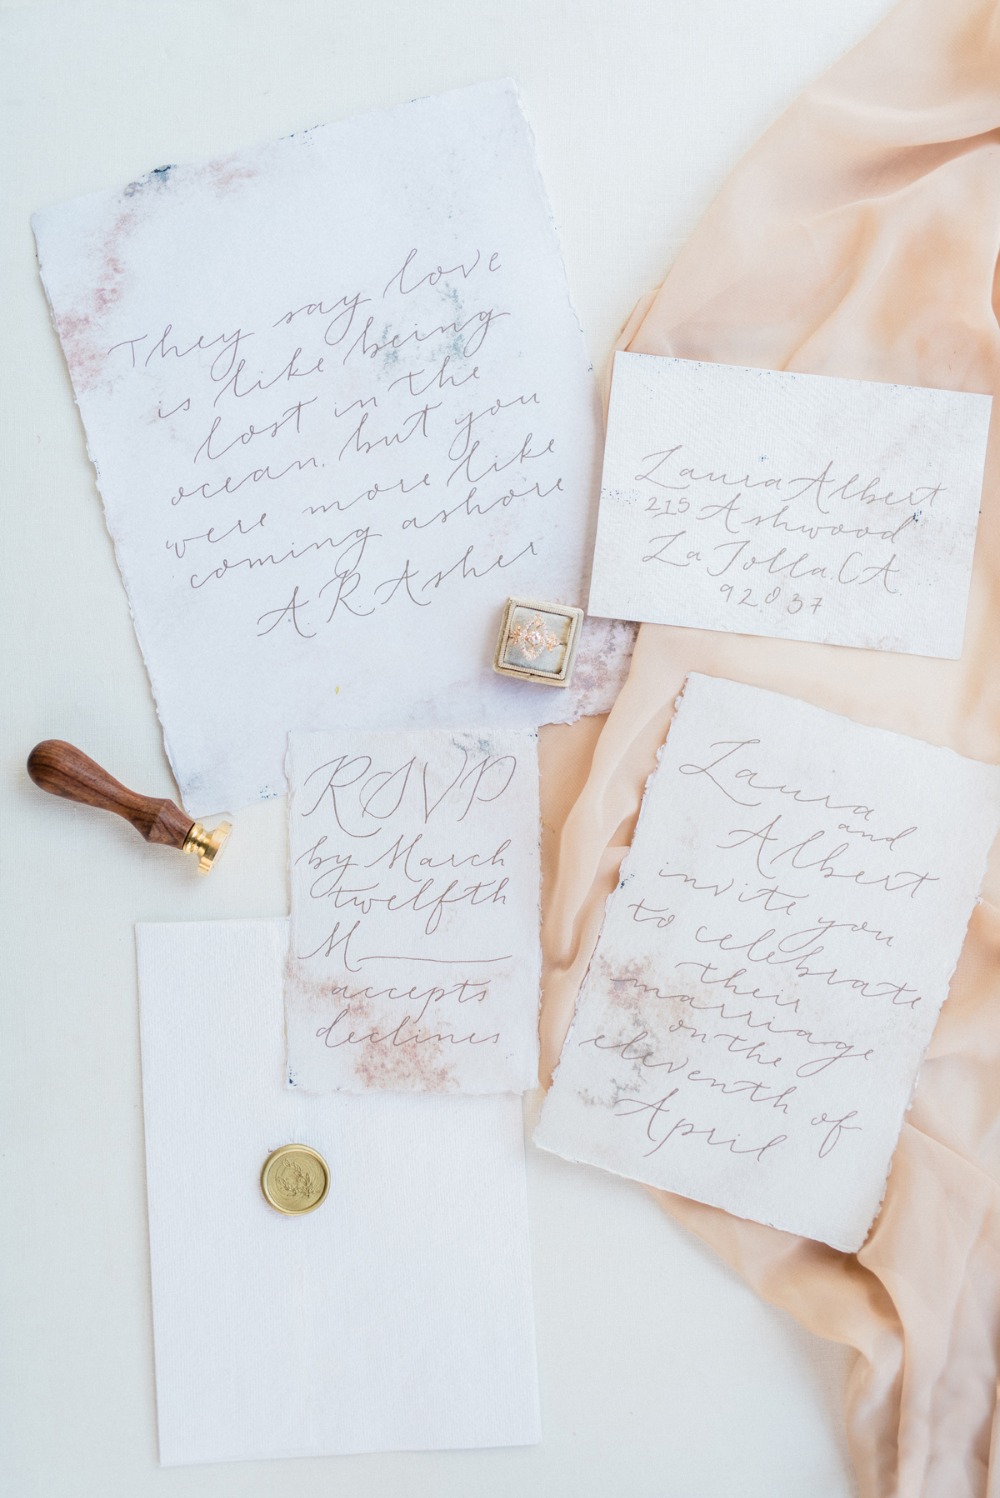 They say love
is like being
lost in the
ocean, but you
were more like
coming ashore
A.R. Asher
Laura Albert
215 Ashwood
La Jolla, CA.
92037
RSVP
by March
twelfth
M
accepts
declines
Laura
and
Albert
invite you
to celebrate
their
marriage
on the
eleventh of
April